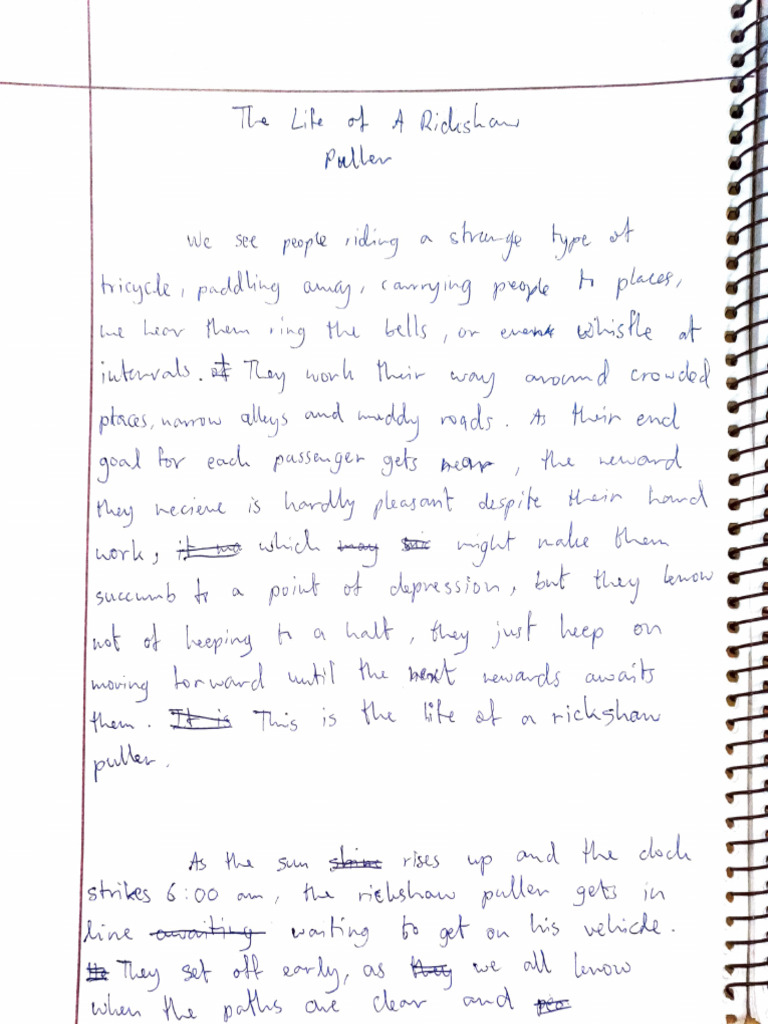 The Life of A Rickshaw
Puller
We see people riding a strange type of
tricycle, paddling away, carrying people to places,
we hear them ring the bells, or whistle at
intervals. They work their way around crowded
places, narrow alleys and muddy roads. As their end
goal for each passenger gets near, the reward
they recieve is hardly pleasant despite their hard
work, which might make them
succumb to a point of depression, but they know
not of keeping to a halt, they just keep on
moving forward until the next rewards awaits
them. This is the life of a rickshaw
puller.
As the sun rises up and the clock
strikes 6:00 am, the rickshaw puller gets in
line waiting to get on his vehicle.
They set off early, as we all know
when the paths are clear and